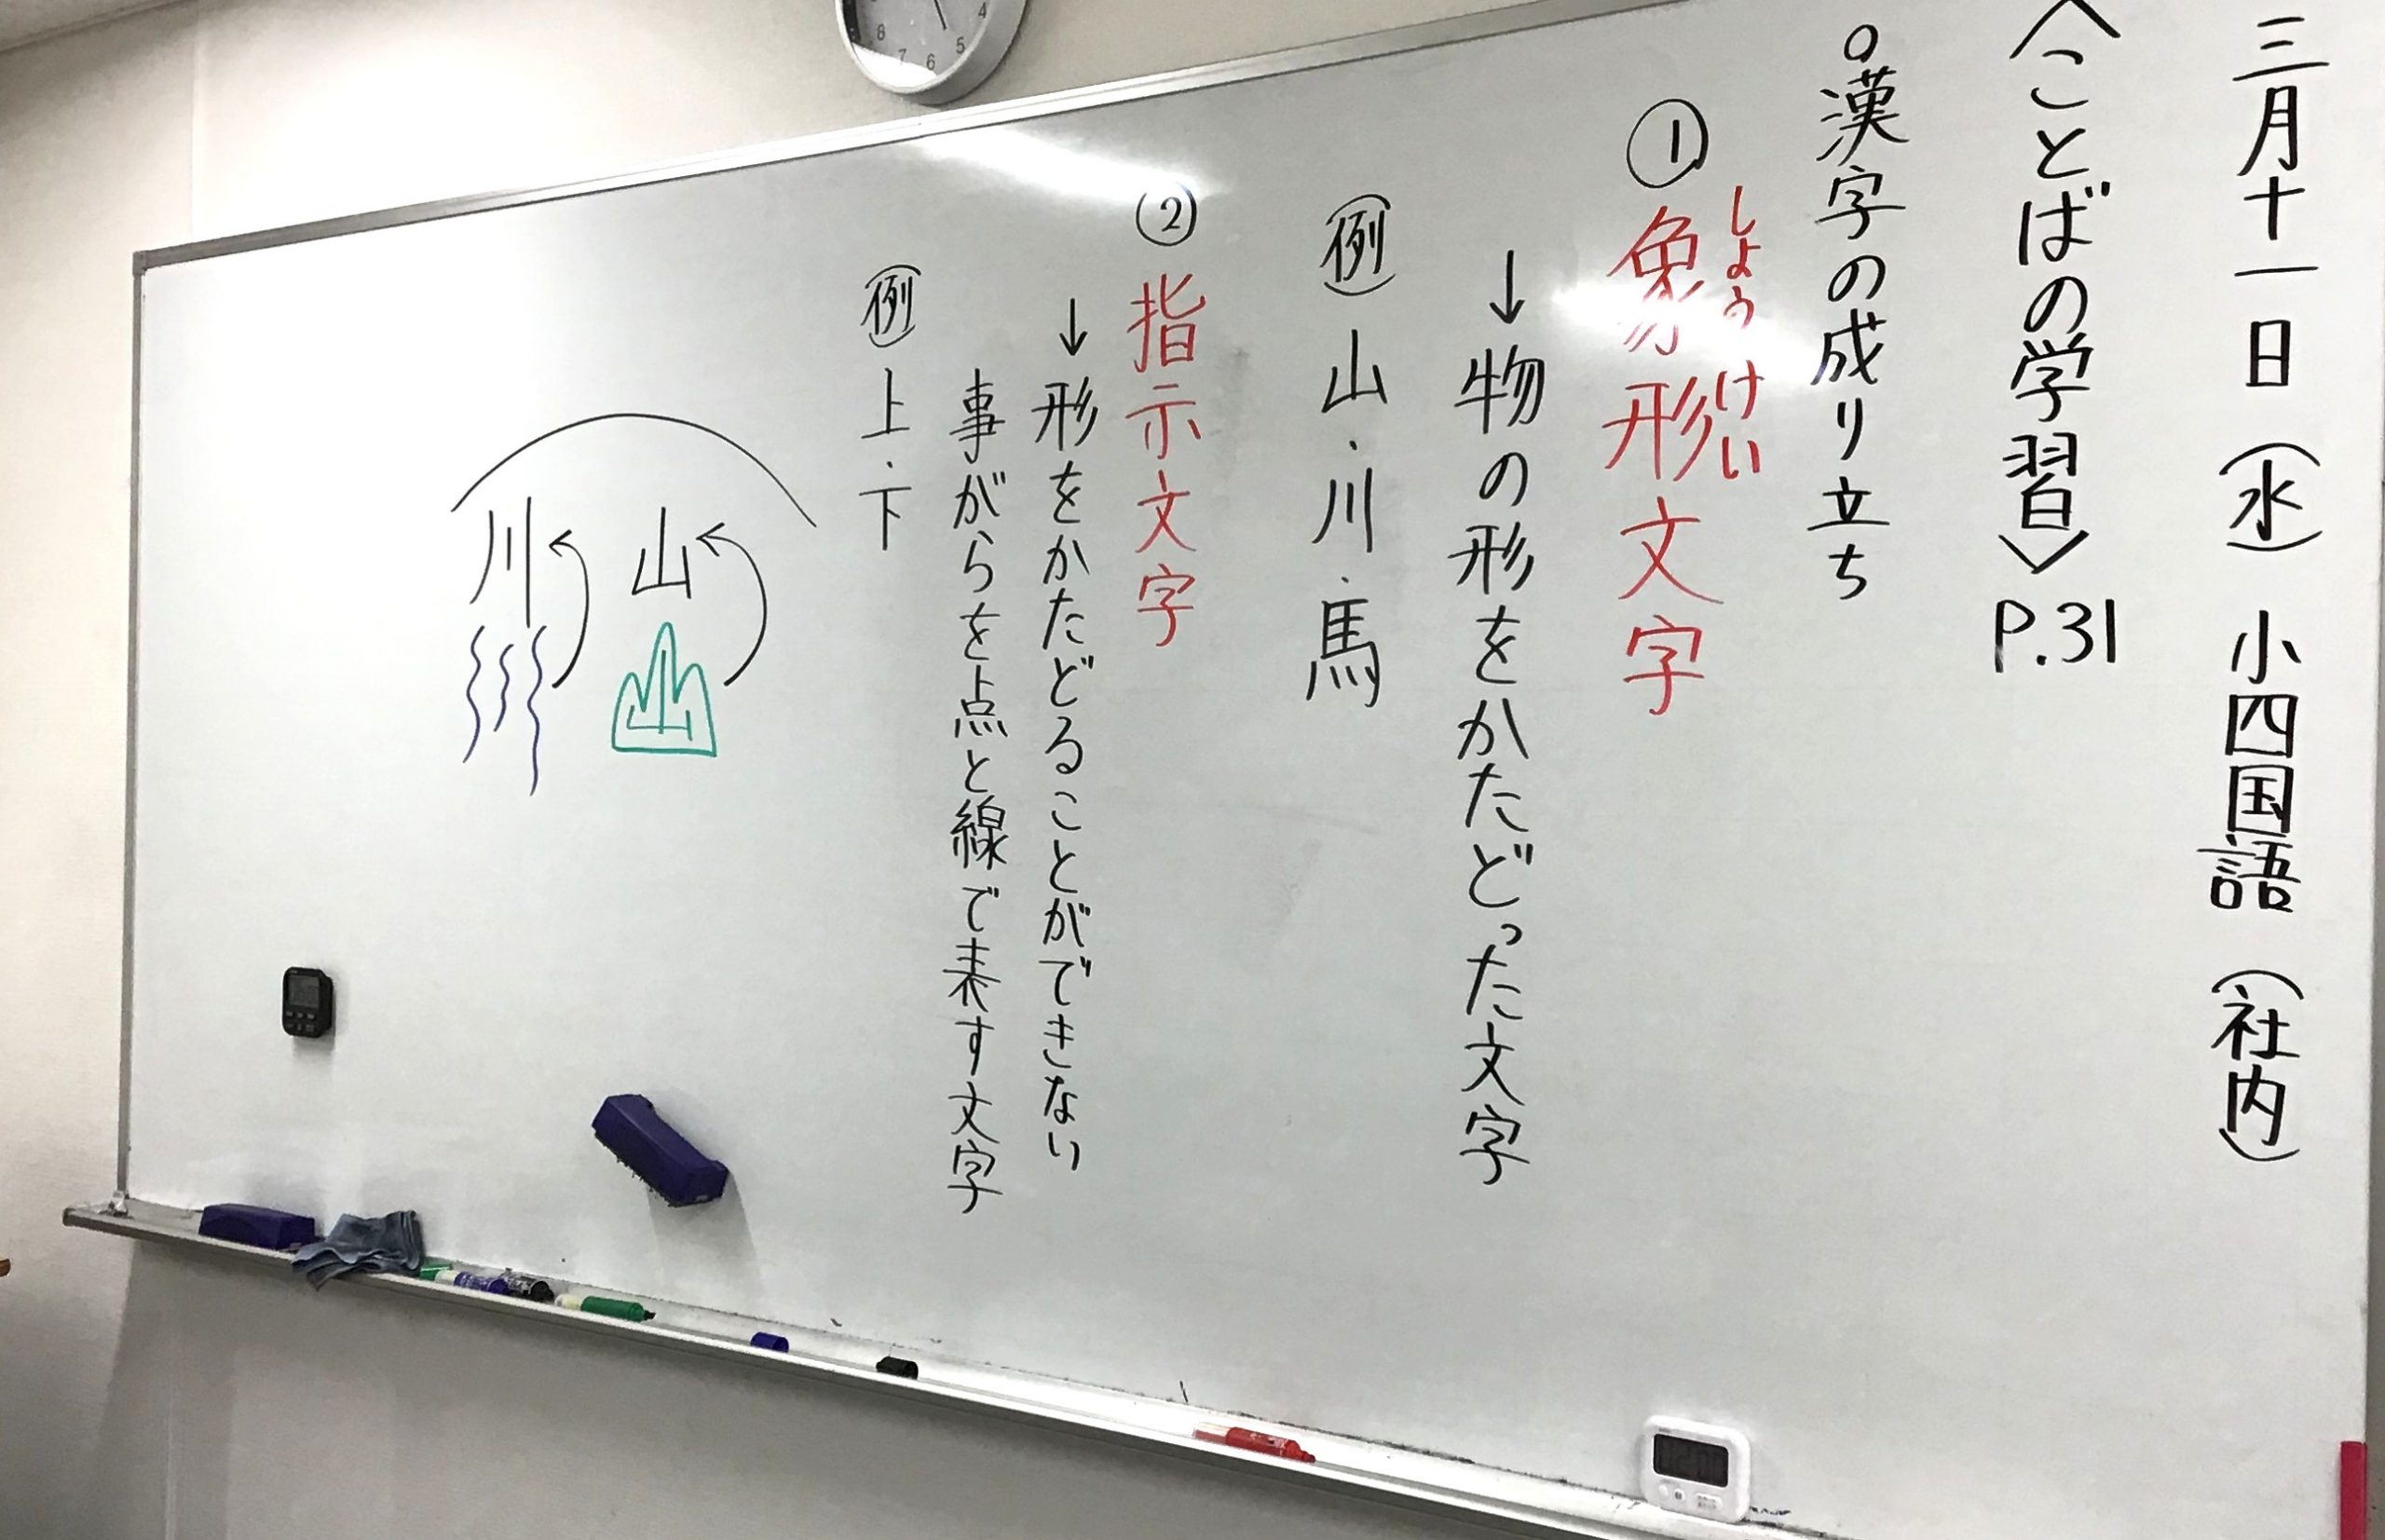 三月十一日（水）　小四国語（社内）
〈ことばの学習〉P.31
○漢字の成り立ち
① 象形文字
しょうけい
↓物の形をかたどった文字
(例) 山・川・馬
② 指示文字
↓形をかたどることができない
事がらを点と線で表す文字
(例) 上・下
山
川
4
5
6
7
8